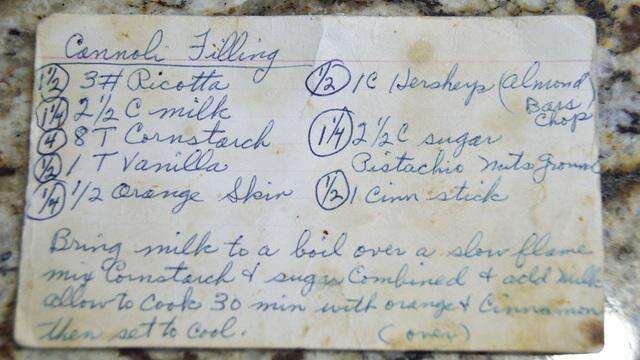 Cannoli Filling
1½ 3# Ricotta
1¼ 2½ C milk
4 8 T Cornstarch
½ 1 T Vanilla
¼ 1/2 Orange Skin
½ 1C Hersheys (Almond
Bars
Chop
1¼ 2½C sugar
Pistachio Nuts Ground
½ 1 Cinn stick
Bring milk to a boil over a slow flame
mix Cornstarch & sugar Combined & add milk
allow to cook 30 min with orange & Cinnamon
then set to cool. (over)